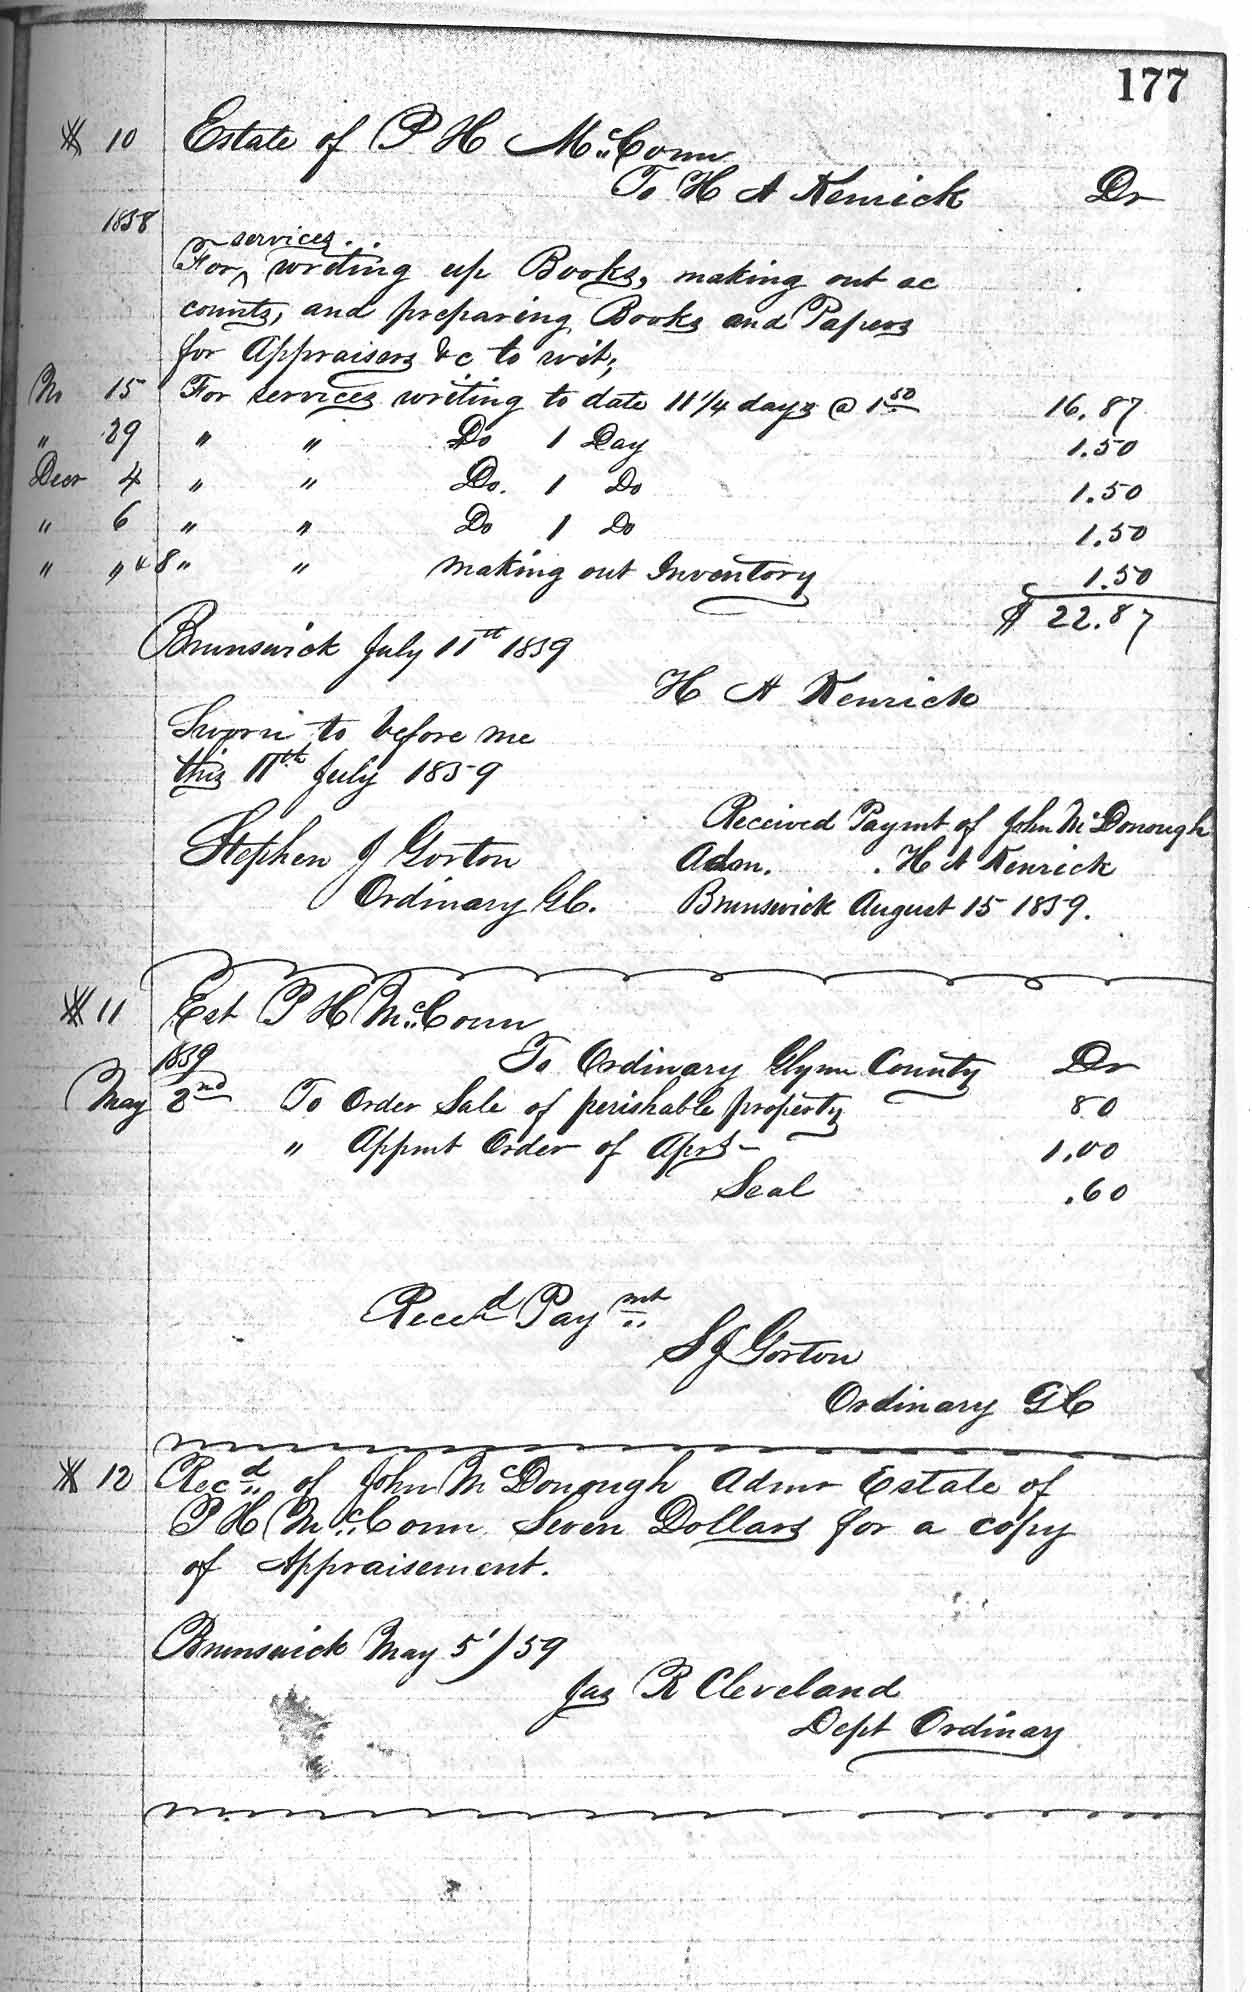 177
# 10 Estate of P H McConn
To H A Kenrick Dr
1858
services
For writing up Books, making out ac
counts, and preparing Books and Papers
for Appraisers &c to wit;
No 15 For services writing to date 11 1/4 days @ 1 50 16.87
" 29 " " Do 1 Day 1.50
Decr 4 " " Do. 1 Do 1.50
" 6 " " Do 1 Do 1.50
" " & 8 " " making out Inventory 1.50
$ 22.87
Brunswick July 11th 1859
H A Kenrick
Sworn to before me
this 11th July 1859
Received Paymt of John McDonough
Stephen J Gorton Adm. . H A Kenrick
Ordinary G C. Brunswick August 15 1859.
# 11 Est P H McConn
1859 To Ordinary Glynn County Dr
May 2nd To Order Sale of perishable property 80
" Appmt Order of Aprs - 1.00
Seal .60
Reced Paymt
S J Gorton
Ordinary G C
# 12 Recd of John McDonough Admr Estate of
P H McConn Seven Dollars for a copy
of Appraisement.
Brunswick May 5'/59
Jas R Cleveland
Dept Ordinary